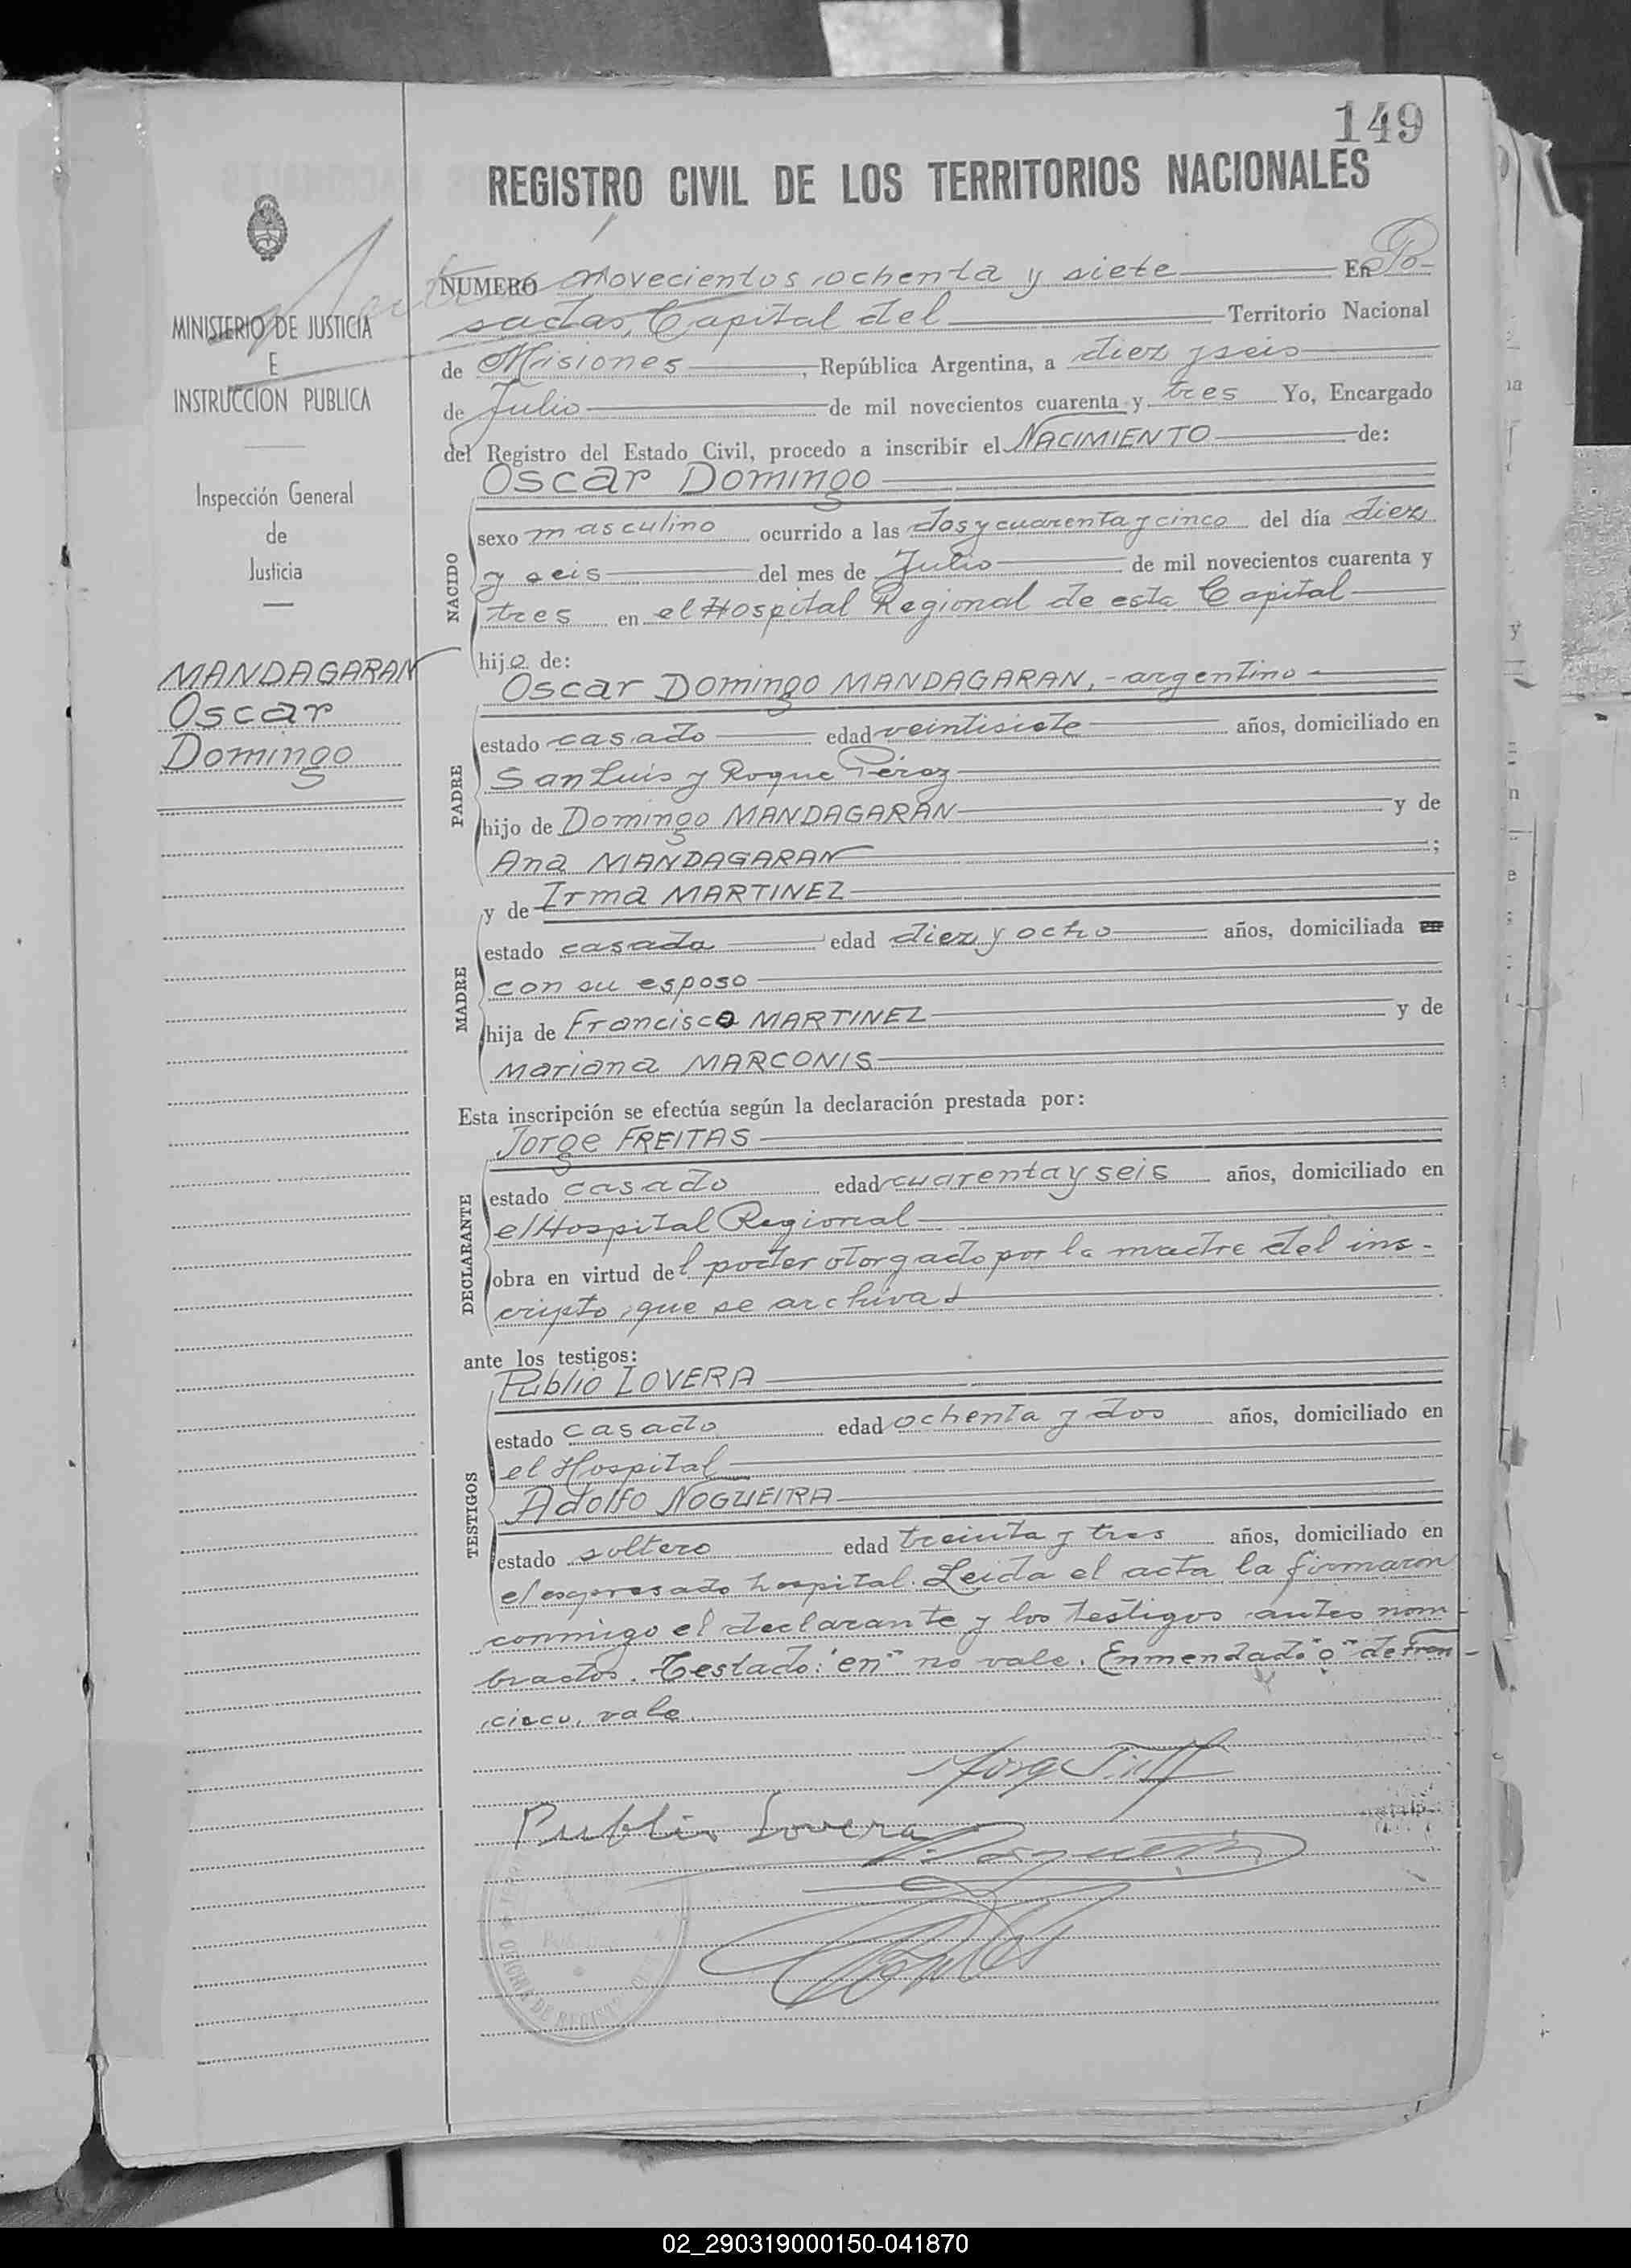 149
REGISTRO CIVIL DE LOS TERRITORIOS NACIONALES
MINISTERIO DE JUSTICIA
E
INSTRUCCION PUBLICA
Inspección General
de
Justicia
MANDAGARAN
Oscar
Domingo
NUMERO Novecientos ochenta y siete En Po-
sadas, Capital del Territorio Nacional
de Misiones, República Argentina, a diez y seis
de Julio de mil novecientos cuarenta y tres Yo, Encargado
del Registro del Estado Civil, procedo a inscribir el NACIMIENTO de:
NACIDO
Oscar Domingo
sexo masculino ocurrido a las dos y cuarenta y cinco del día diez
y seis del mes de Julio de mil novecientos cuarenta y
tres en el Hospital Regional de esta Capital
hijo de:
PADRE
Oscar Domingo MANDAGARAN, - argentino
estado casado edad veintisiete años, domiciliado en
San Luis y Roque Pérez
hijo de Domingo MANDAGARAN y de
Ana MANDAGARAN;
MADRE
y de Irma MARTINEZ
estado casada edad diez y ocho años, domiciliada en
con su esposo
hija de Francisco MARTINEZ y de
Mariana MARCONIS
Esta inscripción se efectúa según la declaración prestada por:
DECLARANTE
Jorge FREITAS
estado casado edad cuarenta y seis años, domiciliado en
el Hospital Regional
obra en virtud del poder otorgado por la madre del ins-
cripto, que se archiva
ante los testigos:
TESTIGOS
Publio LOVERA
estado casado edad ochenta y dos años, domiciliado en
el Hospital
Adolfo NOGUEIRA
estado soltero edad treinta y tres años, domiciliado en
el expresado hospital. Leida el acta la firmaron
conmigo el declarante y los testigos antes nom-
brados. Testado: "en" no vale. Enmendado "o" de Fran-
cisco, vale
Publio Lovera
OFICINA DE REGISTRO
02_290319000150-041870